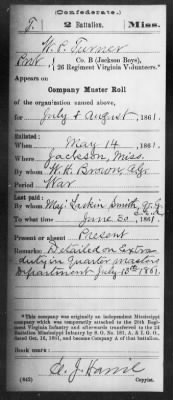 (Confederate.)
T. 2 Battalion. Miss.
W. P. Turner
Pvt Co. B (Jackson Boys),
26 Regiment Virginia Volunteers.*
Appears on
Company Muster Roll
of the organization named above,
for July & August, 1861.
Enlisted:
When May 14, 1861.
Where Jackson, Miss.
By whom W. R. Brown,
Period War
Last paid:
By whom Maj. Larkin Smith,
To what time June 30, 1861.
Present or absent Present
Remarks: Detailed on extra
duty in Quarter masters
Department July 15th 1861.
*This company was originally an independent Mississippi
company which was temporarily attached to the 26th Regi-
ment Virginia Infantry and afterwards transferred to the 2d
Battalion Mississippi Infantry by S. O. No. 181, A. & I. G. O.,
dated Oct. 16, 1861, and became Company A of that Battalion.
Book mark:
(642) Copyist.